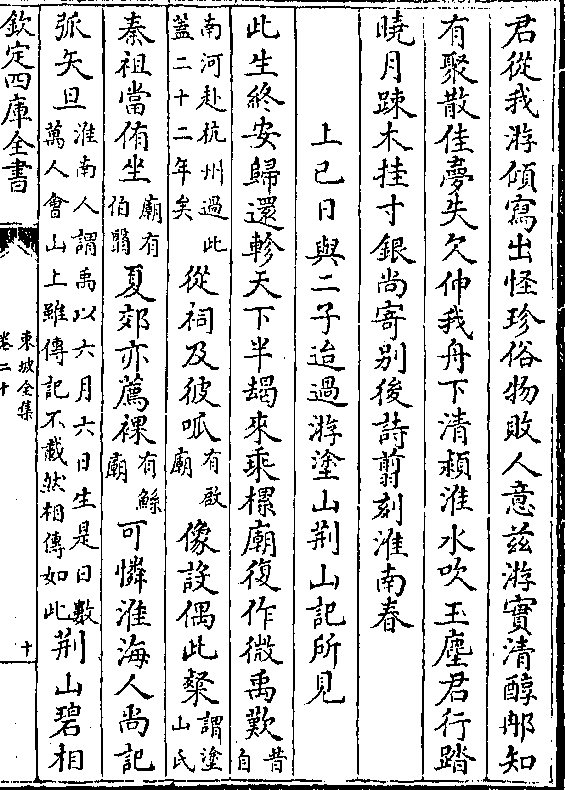 君從我游傾寫出怪珍俗物敗人意兹游實清醇那知
有聚散佳夢失欠伸我舟下清潁淮水吹玉塵君行踏
曉月踈木挂寸銀尚寄别後詩翦刻淮南春
上巳日與二子迨過游塗山荆山記所見
此生終安歸還軫天下半朅來乗樏廟復作微禹歎昔自
南河赴杭州過此
蓋二十二年矣
從祠及彼呱有啟廟像設偶此粲謂塗山氏
秦祖當侑坐廟有伯翳夏郊亦薦祼有鯀廟可憐淮海人尚記
弧矢旦淮南人謂禹以六月六日生是日數
萬人會山上雖傳記不載然相傳如此
荆山碧相
欽定四庫全書
東坡全集
卷二十
十